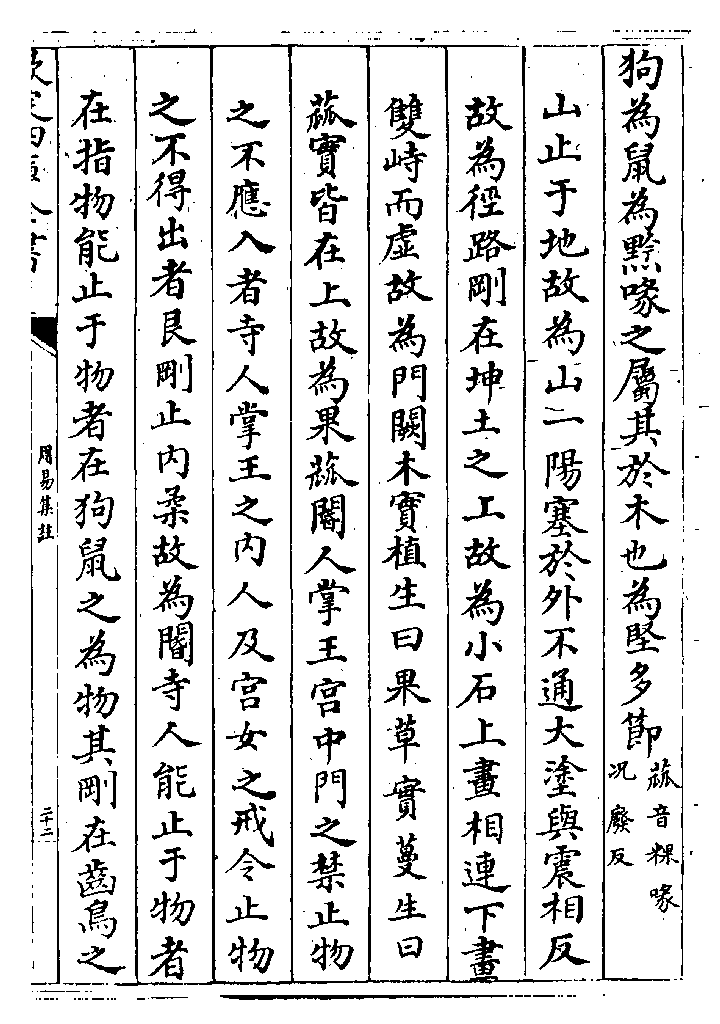 狗為鼠為黔喙之屬其於木也為堅多節蓏音粿喙況廢反
山止于地故為山一陽塞於外不通大塗與震相反
故為徑路剛在坤土之上故為小石上畫相連下畫
雙峙而虛故為門闕木實植生曰果草實蔓生曰
蓏實皆在上故為果蓏閽人掌王宮中門之禁止物
之不應入者寺人掌王之內人及宮女之戒令止物
之不得出者艮剛止內柔故為閽寺人能止于物者
在指物能止于物者在狗鼠之為物其剛在齒鳥之
欽定四庫全書
周易集註
二十二